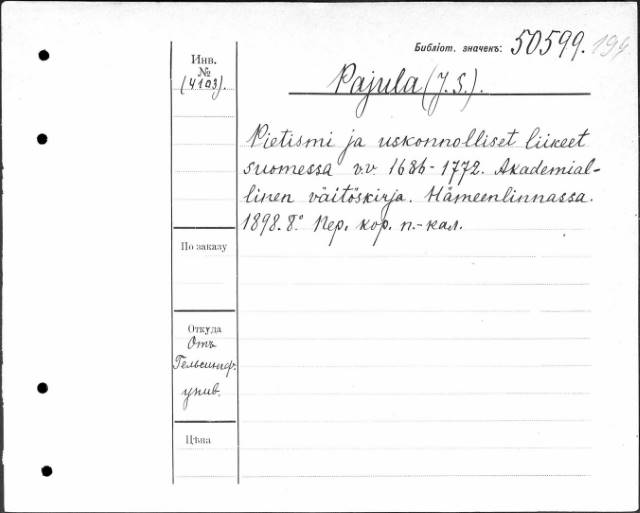 Библіот. значекъ: 50599. 194
Инв.
№
(4103).
Pajula (J. S.).
Pietismi ja uskonnolliset liikeet
suomessa v.v. 1686-1772. Akademial-
linen väitöskirja. Hämeenlinnassa.
1898. 8° Пер. кор. п.-кал.
По заказу
Откуда
Отъ
Гельсингф.
унив.
Цѣна